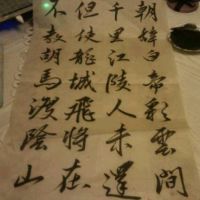 朝辭白帝彩雲間
千里江陵人未還
但使龍城飛將在
不教胡馬渡陰山